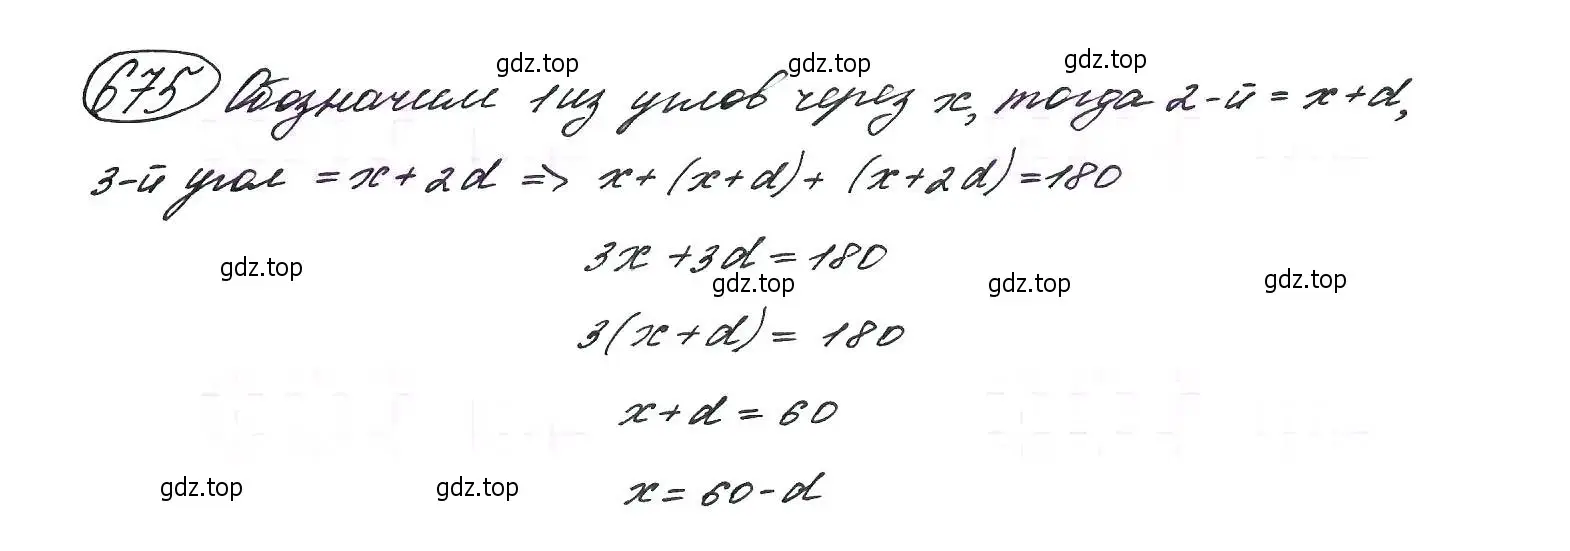 gdz.top gdz.top gdz.top
675 Обозначим 1 из углов через x, тогда 2-й = x+d,
3-й угол = x+2d => x+(x+d)+(x+2d)=180
3x+3d=180
gdz.top gdz.top gdz.top gdz.top
3(x+d)=180
x+d=60
gdz.top gdz.top
x=60-d